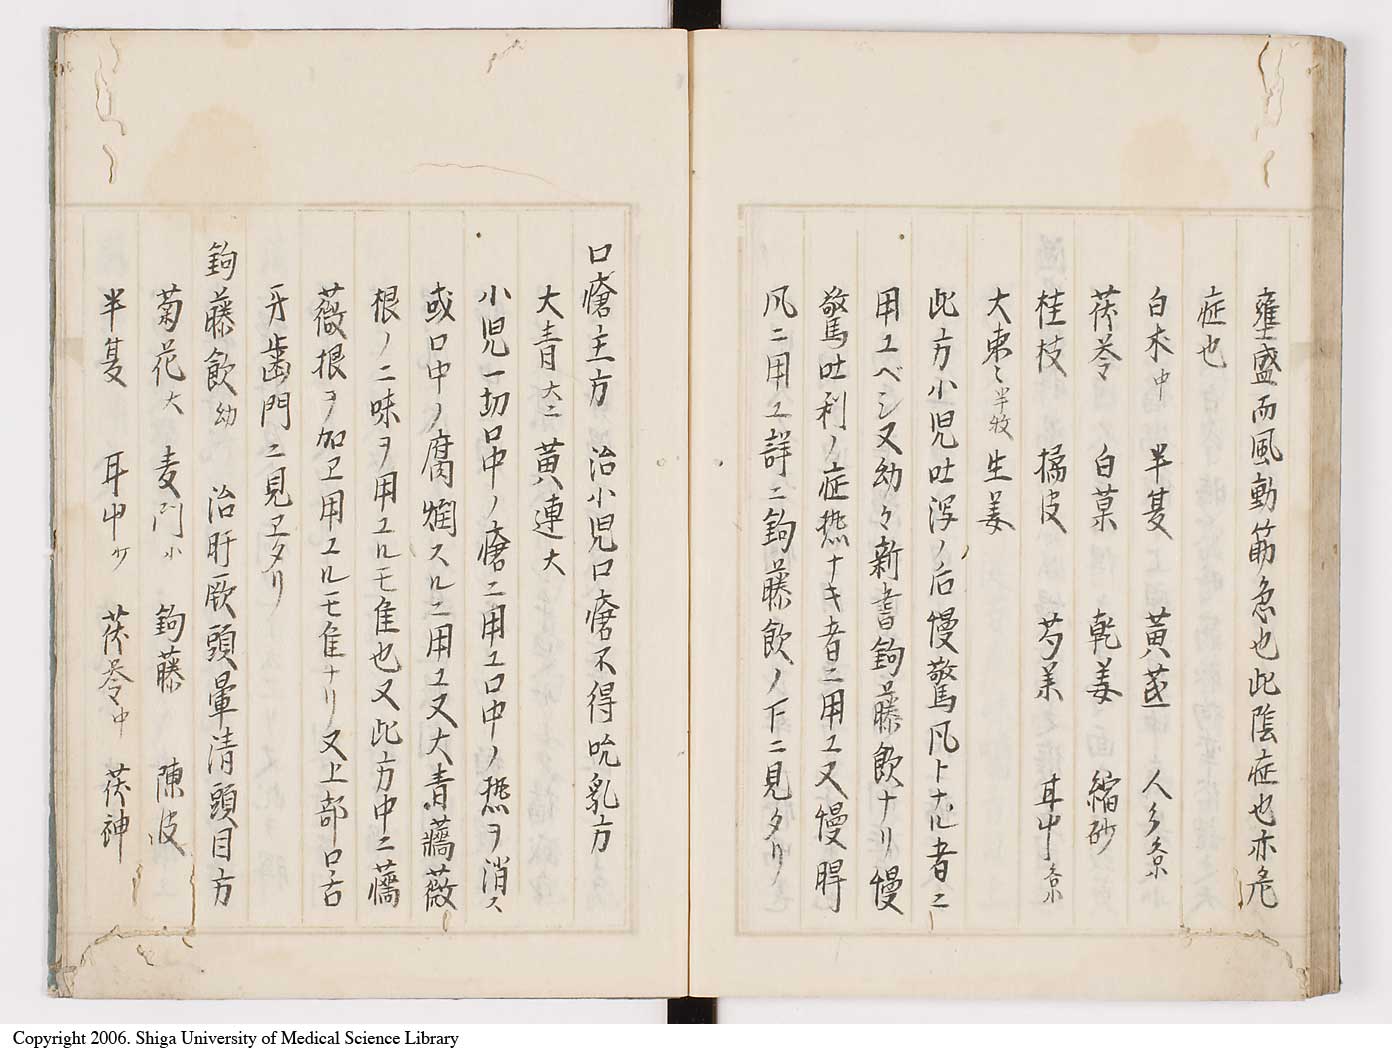 壅盛而風動筋急也此陰症也亦危
症也
白朮中 半夏 黃芪 人参京
茯苓 白菓 乾姜 縮砂
桂枝 橘皮 芍薬 甘中京
大棗 半枚 生姜
此方小児吐瀉ノ后慢驚凡トナル者ニ
用ユベシ又幼々新書鉤藤飲ナリ慢
驚吐利ノ症㷔ナキ者ニ用ユ又慢脾
凡ニ用ユ詳ニ鉤藤飲ノ下ニ見タリ
口瘡主方 治小児口瘡不得吮乳方
大青大ニ 黃連大
小児一切口中ノ瘡ニ用ユ口中ノ㷔ヲ消ス
或口中ノ腐爛スルニ用ユ又大青薔薇
根ノ二味ヲ用ユルモ隹也又此方中ニ薔
薇根ヲ加ヱ用ユルモ隹ナリ又上部口舌
牙歯門ニ見ヱタリ
鉤藤飲幼 治肝厥頭暈清頭目方
菊花大 麦門小 鉤藤 陳皮
半夏 甘中少 茯苓中 茯神
Copyright 2006. Shiga University of Medical Science Library